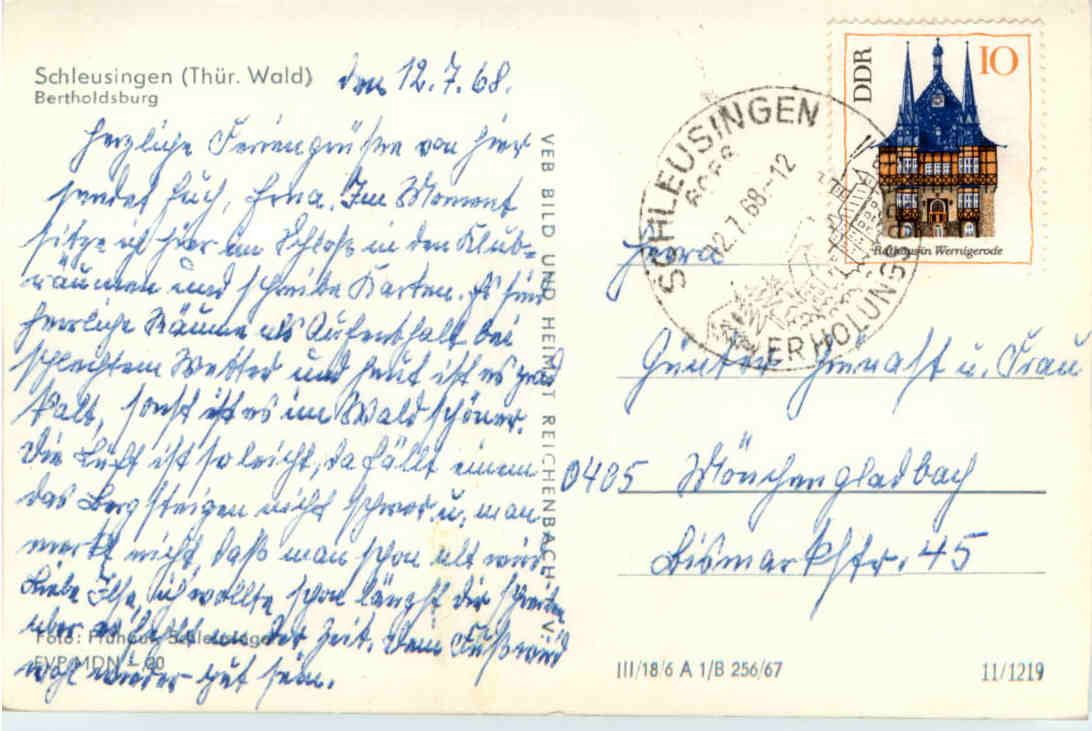 Schleusingen (Thür. Wald)
Bertholdsburg
den 12.7.68.
Herzliche Feriengrüße von hier
sendet Euch, Erna. Im Moment
sitze ich hier im Schloß in den Klub-
räumen und schreibe Karten. Es sind
herrliche Räume als Aufenthalt bei
schlechtem Wetter und heut ist es grad
kalt, sonst ist es im Wald schöner.
Die Luft ist so leicht, da fällt einem
das Bergsteigen nicht schwer u. man
merkt nicht, daß man schon alt wird.
Liebe Ilse, ich wollte schon längst dir schreiben
aber es fehlt an der Zeit. Dem Fuß wird
wohl wieder gut sein.
Foto: Frühauf, Schleusingen
EVP MDN -,20
VEB BILD UND HEIMAT REICHENBACH I. V.
SCHLEUSINGEN
12.7.68.-12
ERHOLUNGS
DDR
10
Rathaus in Wernigerode
Herrn
Günter u. Frau
0405 Mönchengladbach
Bismarckstr. 45
III/18/6 A 1/B 256/67
11/1219